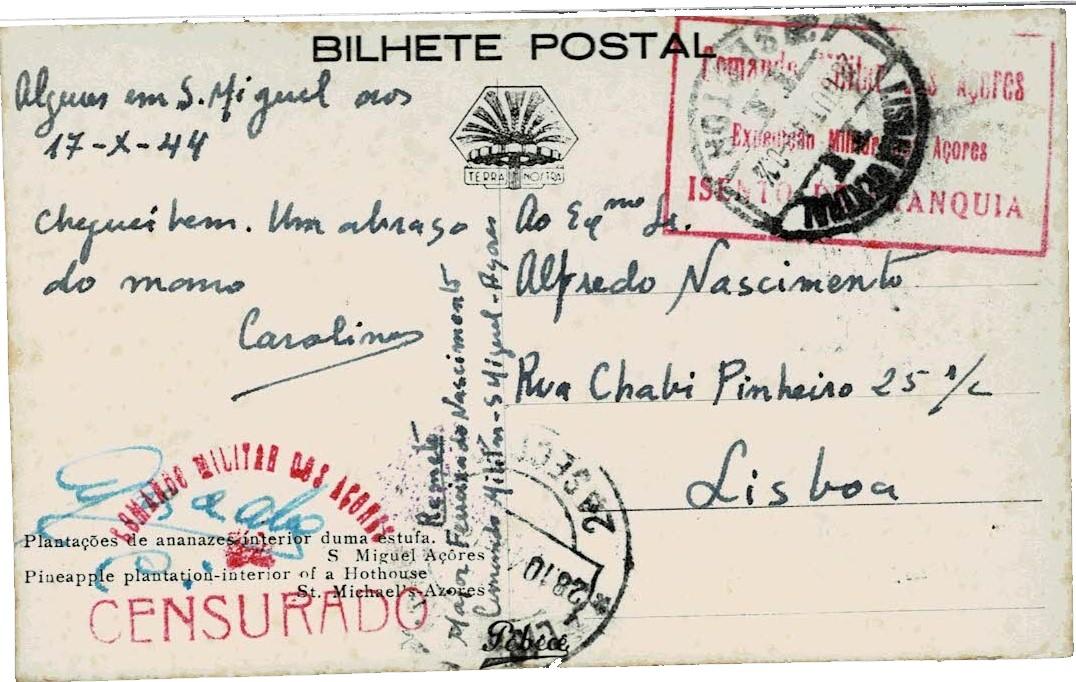 BILHETE POSTAL
Algures em S. Miguel aos
17-X-44
cheguei bem. Um abraço
do mano
Carolino
TERRA NOSTRA
Comando Militar dos Açores
Expedição Militar Açores
ISENTO DE FRANQUIA
LISBOA CENTRAL
Ao Exmo Sr.
Alfredo Nascimento
Rua Chabi Pinheiro 25 r/c
Lisboa
Remete
Major Ferreira do Nascimento
Comando Militar - S Miguel - Açores
COMANDO MILITAR DOS AÇORES
Plantações de ananazes-interior duma estufa.
S Miguel Açôres
Pineapple plantation-interior of a Hothouse
St. Michael's-Azores
CENSURADO
2ª SECÇ
28.10